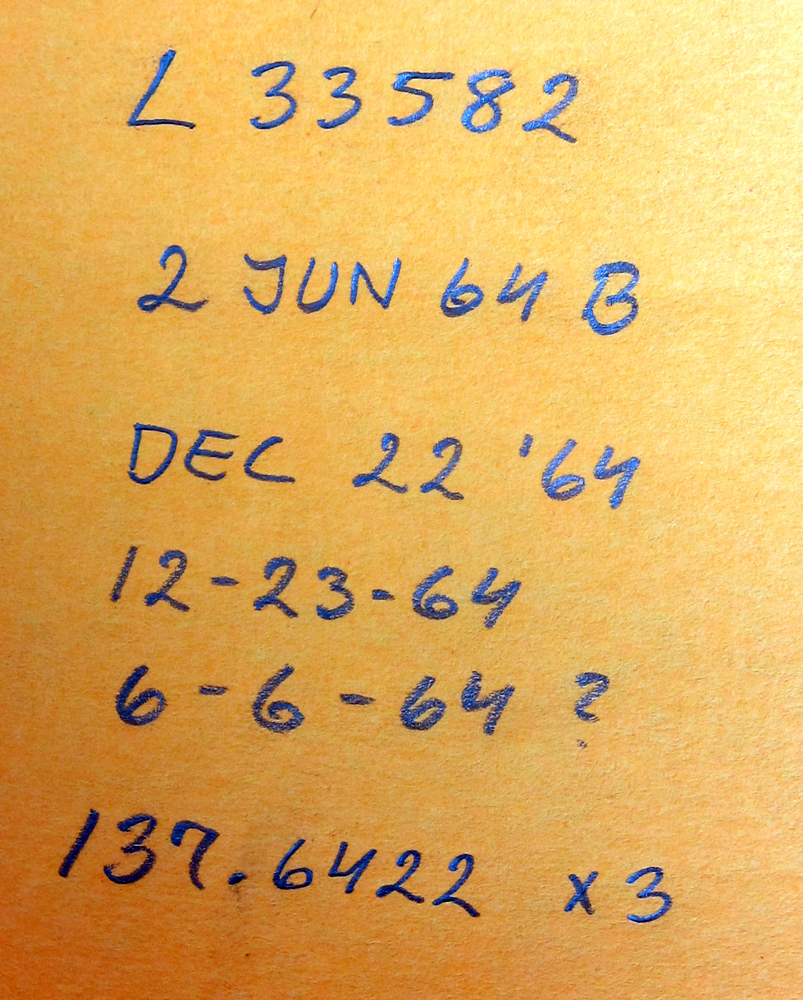 L 33582
2 JUN 64 B
DEC 22 '64
12-23-64
6-6-64 ?
137.6422 x3